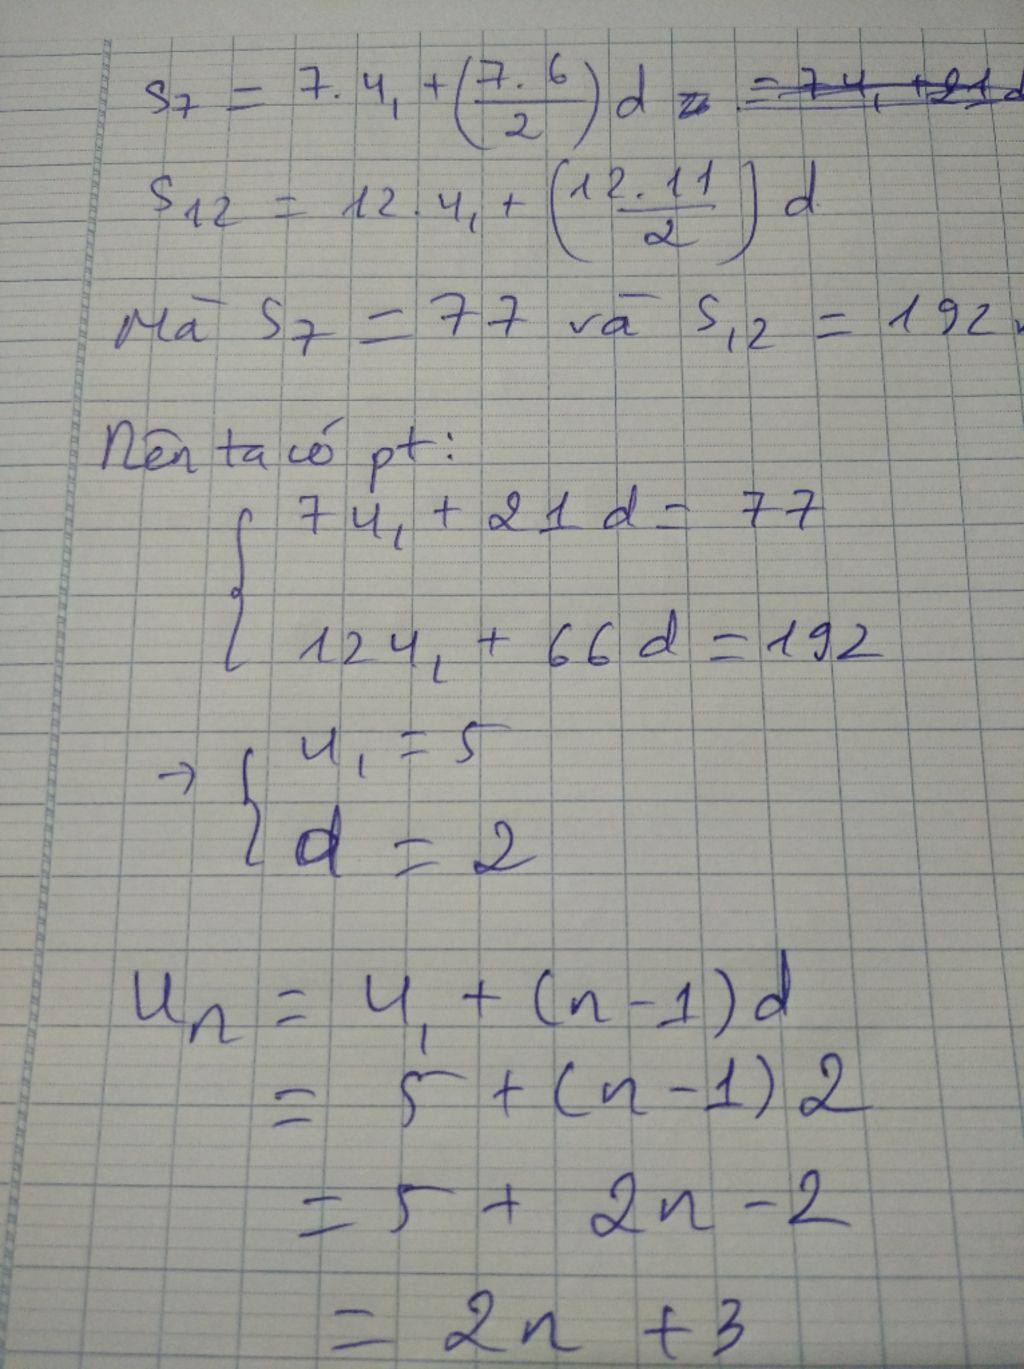 S₇ = 7. u₁ + (7.6/2) d = = 7u₁ + 21d
S₁₂ = 12. u₁ + (12.11/2) d
Mà S₇ = 77 và S₁₂ = 192
Nên ta có pt:
{ 7u₁ + 21d = 77
12u₁ + 66d = 192
→ { u₁ = 5
d = 2
uₙ = u₁ + (n-1)d
= 5 + (n-1)2
= 5 + 2n - 2
= 2n + 3